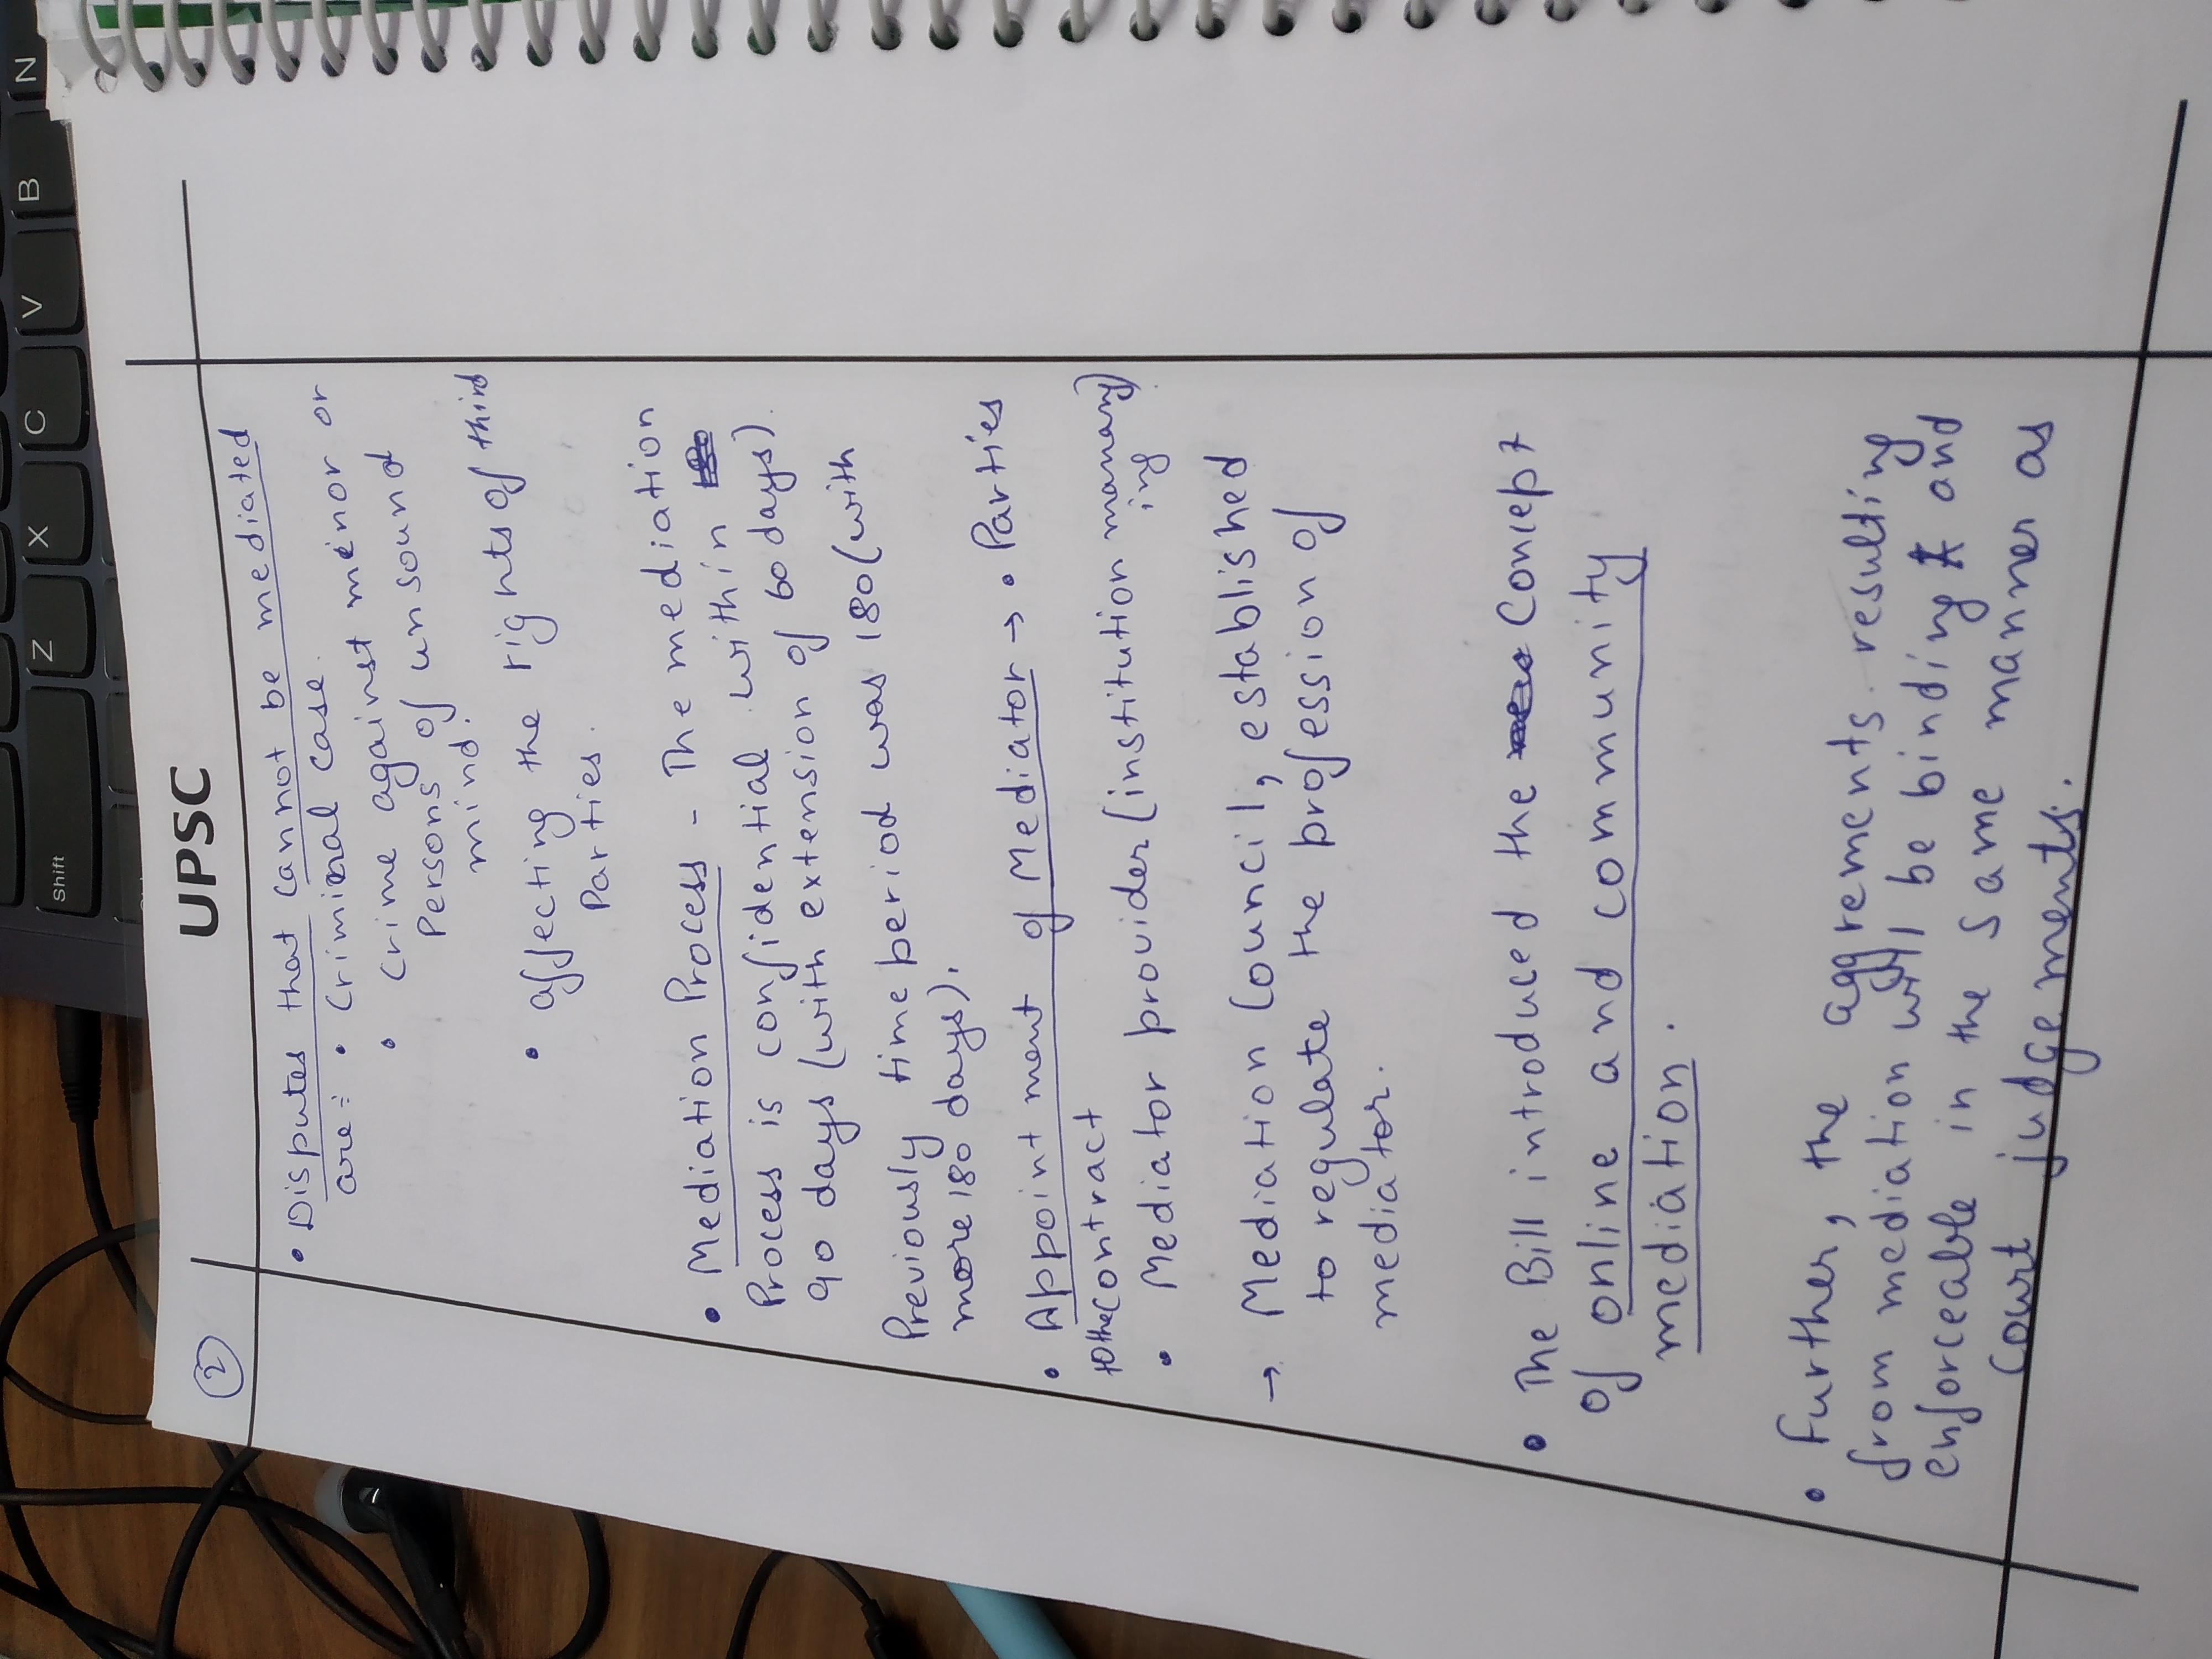 UPSC
2
• Disputes that cannot be mediated
are:- • Criminal case.
• Crime against minor or
Persons of unsound
mind.
• affecting the rights of third
Parties.
• Mediation Process - The mediation
Process is confidential within
90 days (with extension of 60 days).
Previously time period was 180 (with
more 180 days).
• Appointment of Mediator → • Parties
to the contract
• Mediator provider (institution manany)
ing
→ Mediation Council, established
to regulate the profession of
mediator.
• The Bill introduced the concept
of online and community
mediation.
• Further, the aggrements resulting
from mediation will be binding and
enforceable in the same manner as
court judgements.
Shift
Z
X
C
V
B
N